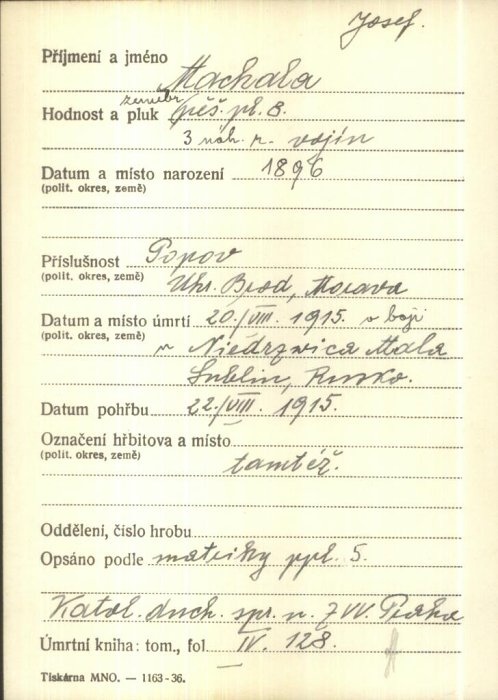 Josef.
Příjmení a jméno Machala
zeměbr.
Hodnost a pluk pěš. pl. 3.
3 náh. r. vojín
Datum a místo narození 1896
(polit. okres, země)
Příslušnost Popov
(polit. okres, země)
Uhr. Brod, Morava
Datum a místo úmrtí 20./VIII. 1915. v boji
(polit. okres, země)
u Niedrzwica Mala
Lublin, Rusko.
Datum pohřbu 22./VIII. 1915.
Označení hřbitova a místo
(polit. okres, země)
tamtéž.
Oddělení, číslo hrobu
Opsáno podle matriky ppl. 5.
Katol. duch. spr. u ZVV. Praha
Úmrtní kniha: tom., fol. IV. 128.
Tiskárna MNO. — 1163-36.